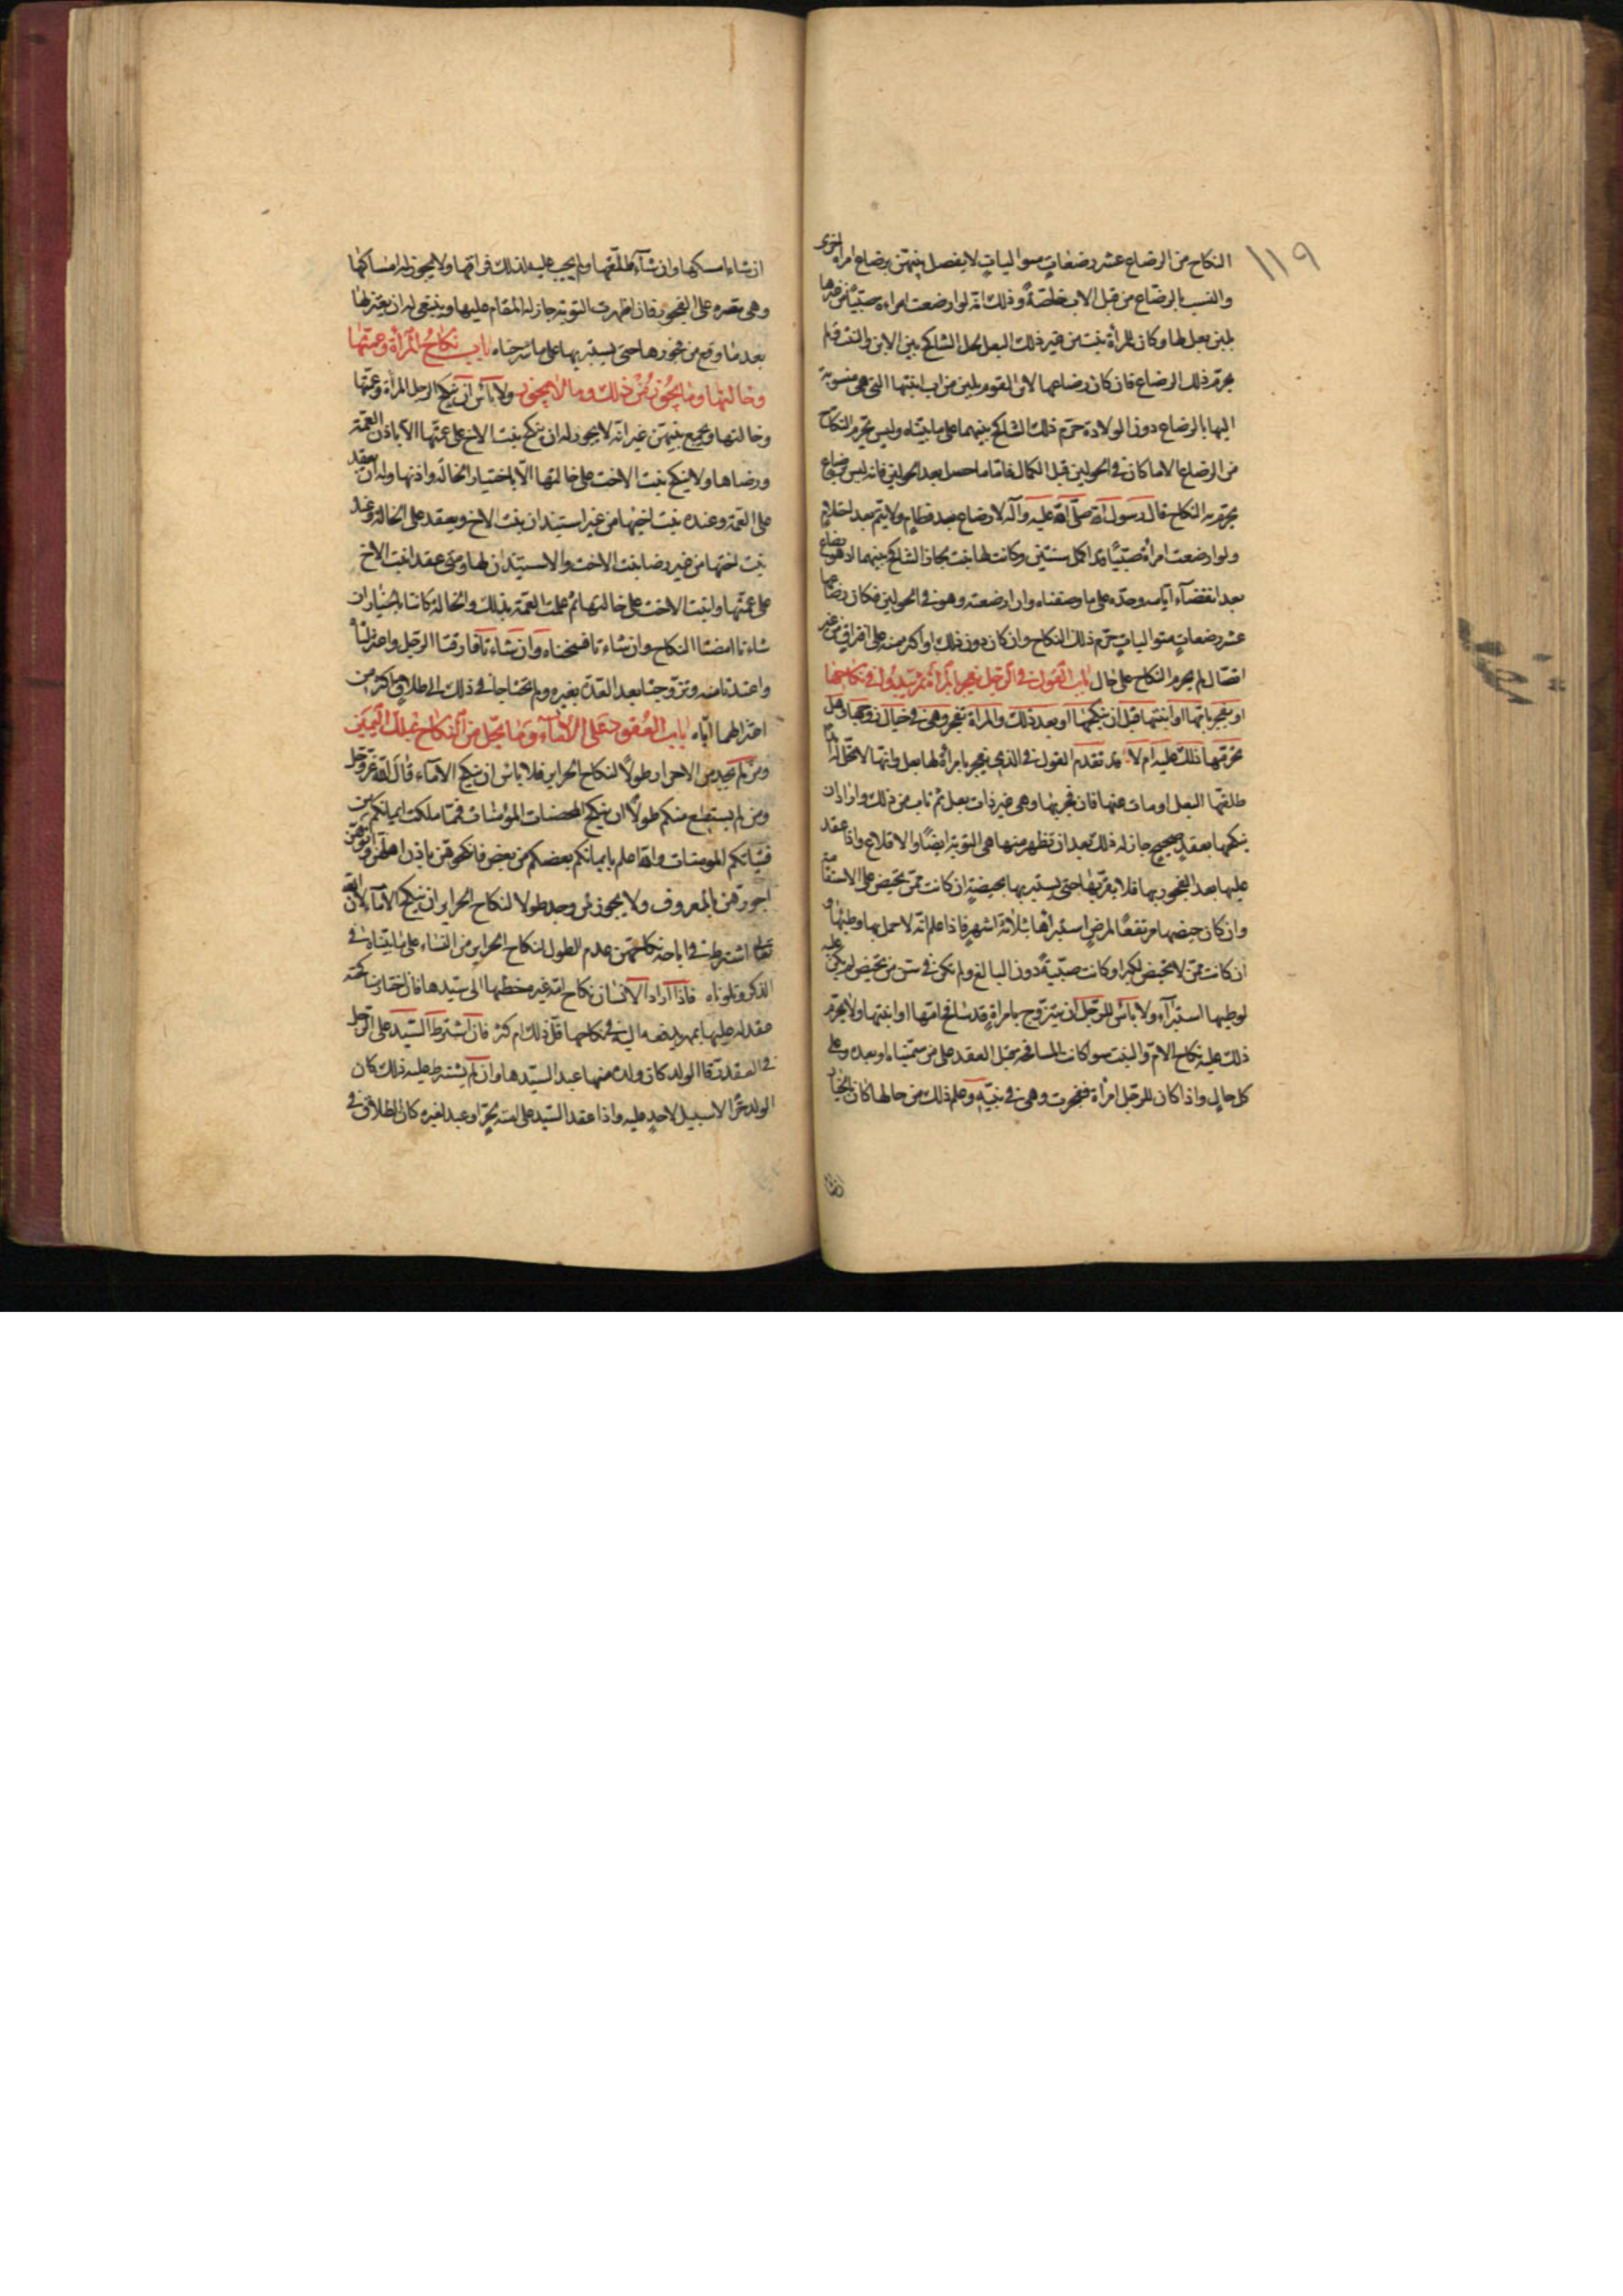 ١١٩
النكاح من الرضاع عشر رضعات متواليات لا يفصل بينهن برضاع امراة اخرى
والنسب بالرضاع من قبل الاب خاصة وذلك انه لو ارضعت امراة صبيا من غيرها
بلبن بعل لها وكان للمرأة بنت من غير ذلك البعل لحل التناكح بين الابن والبنت ولم
يحرم ذلك الرضاع فان كان رضاعها لابن القوم بلبن من اب ابنتها التي هي منسوبة
اليها بالرضاع دون الولادة حرم ذلك التناكح بينهما على ما بيناه وليس يحرم النكاح
من الرضاع الا ما كان في الحولين قبل الكمال فاما ما حصل بعد الحولين فانه ليس برضاع
يحرم به النكاح قال رسول الله صلى الله عليه وآله لا رضاع بعد فطام ولا يتم بعد احتلام
ولو ارضعت امرأة صبيا قد اكمل سنتين وكانت لها بنت لجاز التناكح بينهما اذ هو رضاع
بعد انقضآء ايامه وحده على ما وصفناه وان ارضعته وهو في الحولين فكان رضاعها
عشر رضعات متواليات حرم ذلك النكاح وان كان دون ذلك او اكثر منه على افتراق من غير
اتصال لم يحرم النكاح على حال باب القول في الرجل يفجر بالمرأة ثم يبدو له في نكاحها
او يفجر بامها او ابنتها قبل ان ينكحها او بعد ذلك والمرأة تفجر وهي في حبال زوجها وهل
يحرمها ذلك عليه ام لا قد تقدم القول في الذي يفجر بامرأة لها بعل وانها لا تحل له ابدا
طلقها البعل او مات عنها فان فجر بها وهي غير ذات بعل ثم تاب من ذلك واراد ان
ينكحها بعقد صحيح جاز له ذلك بعد ان تظهر منها هي التوبة ايضا والاقلاع واذا عقد
عليها بعد الفجور بها فلا يقربها حتى يستبريها بحيضة ان كانت ممن تحيض على الاستقامة
وان كان حيضها مرتفعا لمرض استبرأها بثلاثة اشهر فاذا علم انه لا حمل بها وطئها و
ان كانت ممن لا تحيض لكبر او كانت صبية دون البالغ ولم تكن في سن من تحيض لم يكن عليه
لوطيها استبرآء ولا بأس للرجل ان يتزوج بامراة قد سافح امها او ابنتها ولا يحرم
ذلك عليه نكاح الام والبنت سوا كانت المسافحة قبل العقد على من سميناه او بعده وعلى
كل حال واذا كان للرجل امرأة ففجرت وهي في بيته وعلم ذلك من حالها كان بالخيار
ان شاء امسكها وان شآء طلقها ولم يجب عليه لذلك فراقها ولا يجوز له امساكها
وهي مصرة على الفجور فان اظهرت التوبة جاز له المقام عليها وينبغي له ان يعتزلها
بعد ما وقع من فجورها حتى يستبريها على ما شرحناه باب نكاح المرأة وعمتها
وخالتها وما يجوز من ذلك وما لا يجوز ولا بأس ان ينكح الرجل المرأة وعمتها
وخالتها ويجمع بينهن غير انه لا يجوز له ان ينكح بنت الاخ على عمتها الا باذن العمة
ورضاها ولا ينكح بنت الاخت على خالتها الا باختيار الخالة واذنها وله ان يعقد
على العمة وعنده بنت اخيها من غير استيذان بنت الاخ ويعقد على الخالة وعنده
بنت اختها من غير رضا بنت الاخت والاستيذان لها ومتى عقد لبنت الاخ
على عمتها وابنت الاخت على خالتها ثم علمت العمة بذلك والخالة كانتا بالخيار ان
شاءتا امضتا النكاح وان شاءتا فسختاه وان شاءتا فارقتا الرجل واعتزلتاه
واعتدتا منه وتزوجتا بعد العدة بغيره ولم تحتاجا في ذلك الى طلاق باكثر من
اعتزالهما اياه باب العقود على الاماء وما يحل من النكاح بملك اليمين
ومن لم يجد من الاحرار طولا لنكاح الحراير فلا باس ان ينكح الامآء قال الله عز وجل
ومن لم يستطع منكم طولا ان ينكح المحصنات المؤمنات فمما ملكت ايمانكم من
فتياتكم المومنات والله اعلم بايمانكم بعضكم من بعض فانكحوهن باذن اهلهن واتوهن
اجورهن بالمعروف ولا يجوز لمن وجد طولا لنكاح الحراير ان ينكح الامآء لان الله
تعالى اشترط في اباحة نكاحهن عدم الطول لنكاح الحراير من النساء على ما بيناه في
الذكر وتلوناه فاذا اراد الانسان نكاح امة غيره خطبها الى سيدها فان اختار مناكحته
عقد له عليها بمهر يدفعه اليه في نكاحها قل ذلك ام كثر فان اشترط السيد على الرجل
في العقد رق الولد كان ولده منها عبدا لسيدها وان لم يشترط عليه ذلك كان
الولد حرا لا سبيل لاحد عليه واذا عقد السيد على امته لحر او عبد لغيره كان الطلاق في